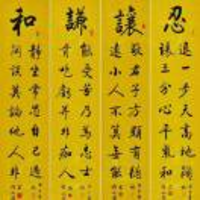 忍
退一步天高地闊
讓三分心平氣和
讓
敬君子方顯有德
小人不算無能
謙
能受苦乃為志士
肯吃虧並非痴人
和
靜坐常思自己過
閑談莫論他人非